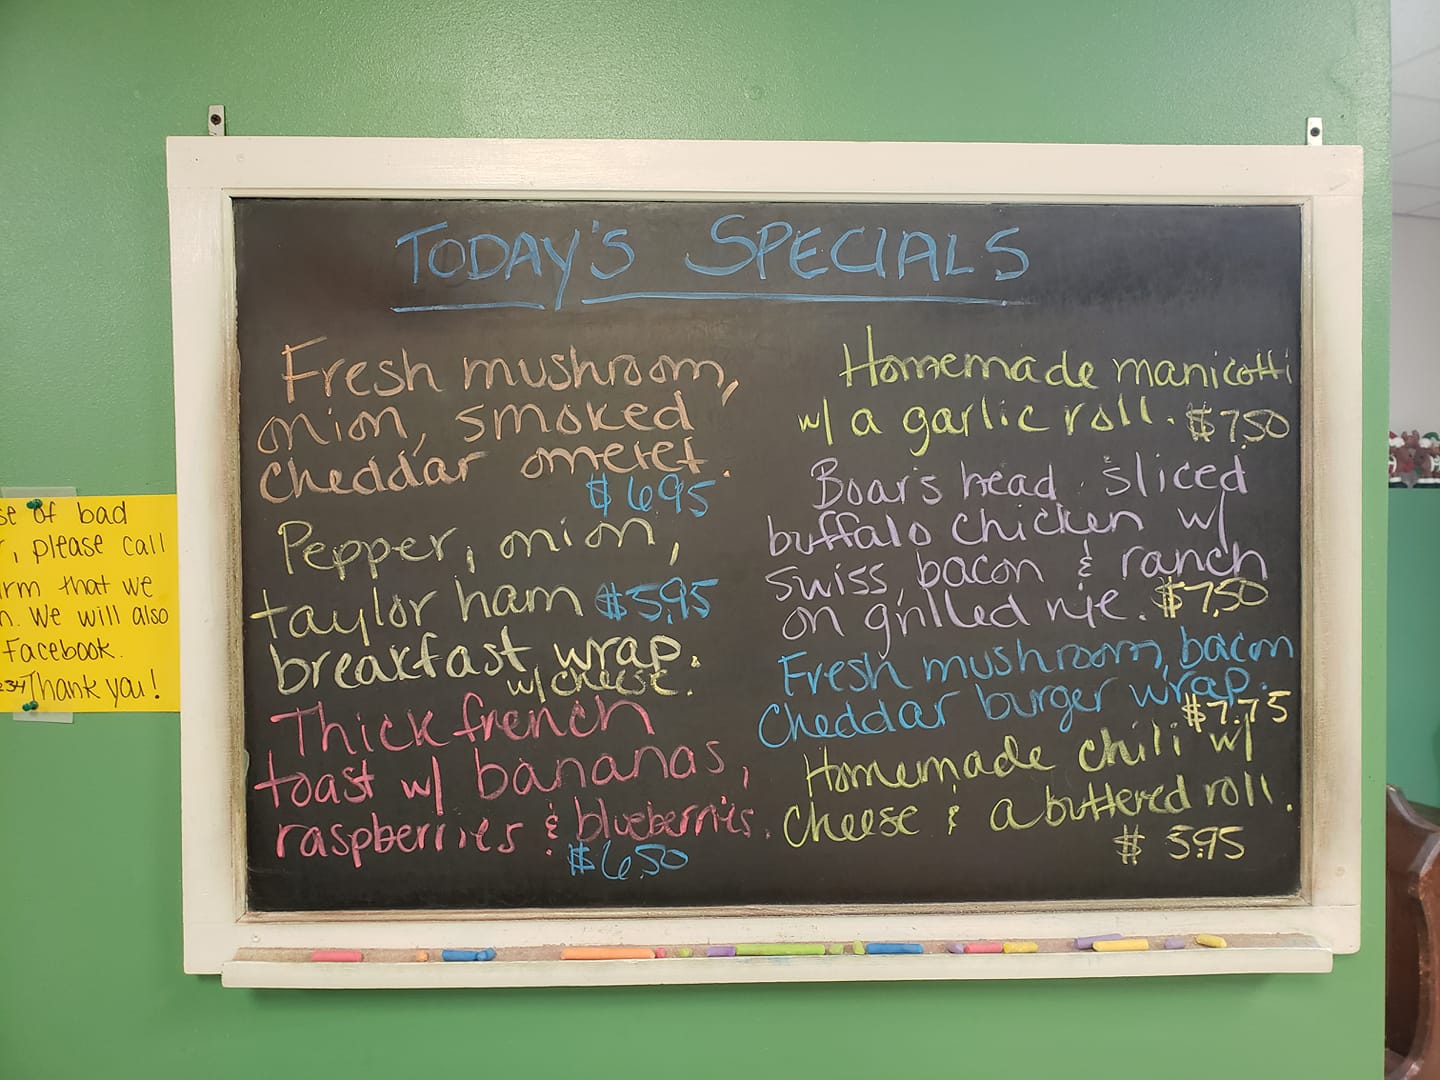 TODAY'S SPECIALS
Fresh mushroom,
onion, smoked
cheddar omelet.
$6.95
Pepper, onion,
taylor ham $5.95
breakfast wrap.
w/ cheese.
Thick french
toast w/ bananas,
raspberries & blueberries.
$6.50
Homemade manicotti
w/ a garlic roll. $7.50
Boars head sliced
buffalo chicken w/
swiss, bacon & ranch
on grilled rye. $7.50
Fresh mushroom, bacon
Cheddar burger wrap.
$7.75
Homemade chili w/
cheese & a buttered roll.
$5.95
se of bad
r, please call
irm that we
n. We will also
Facebook.
234 Thank you!